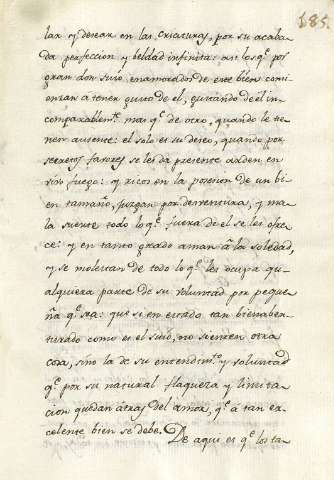 185.
lar y desear en las criaturas, por su acaba
da perfeccion y beldad infinita: asi los q.e por
gran don suio, enamorados de este bien comi
enzan a tener gusto de el, gustando de él in-
comparablem.te mas q.e de otro, quando le tie
nen ausente: el solo es su deseo, quando por
secretos favores se les da presente arden en
su fuego: y ricos en la posesion de un bi
en tamaño, juzgan por desventura, y ma
la suerte todo lo q.e fuera de el se les ofre
ce: y en tanto grado aman a la soledad,
y se molestan de todo lo q.e les ocupa qu-
alquiera parte de su voluntad por peque
ña q.e sea: que si en estado tan bienaben-
turado como es el suio, no sienten otra
cosa, sino la de su entendim.to y voluntad
q.e por su natural flaqueza y limita-
cion quedan atras del amor, q.e a tan ex-
celente bien se debe.
De aqui es q.e los ta-